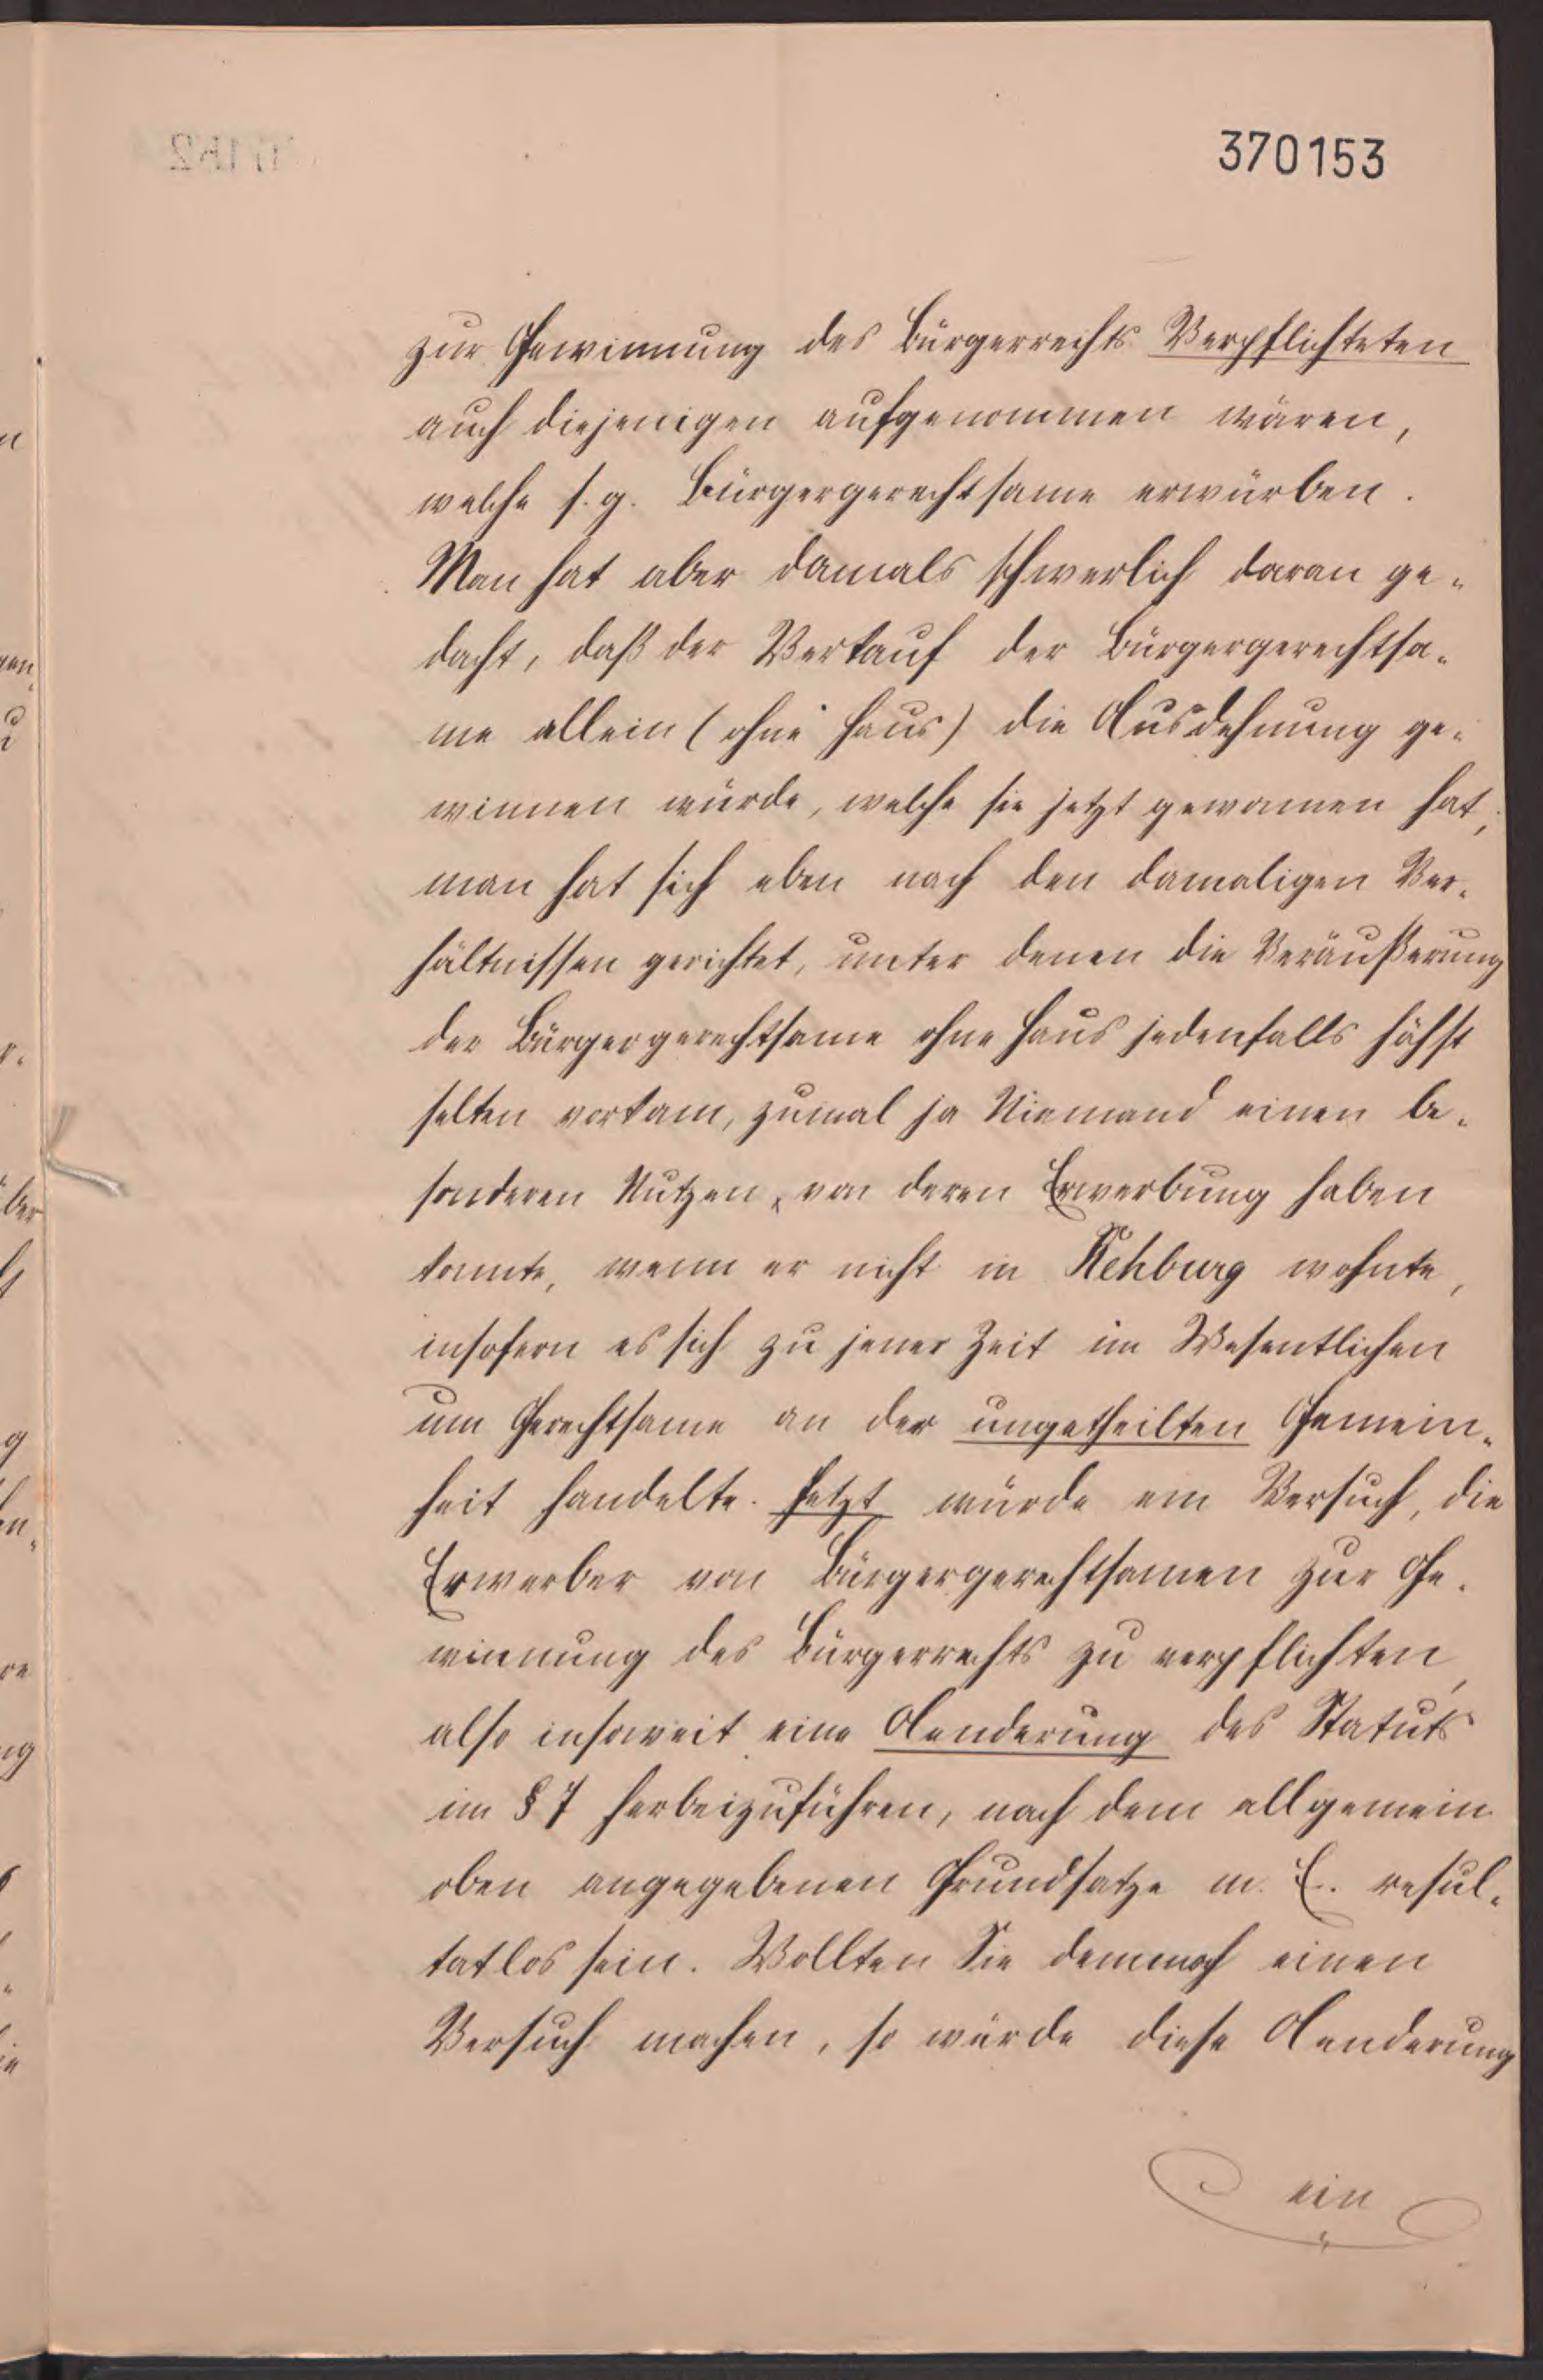 370153
zur Gewinnung des Bürgerrechts Verpflichteten
auch diejenigen aufgenommen wären,
welche s. g. Bürgergerechtsame erwürben.
Man hat aber damals schwerlich daran ge-
dacht, daß der Verkauf der Bürgergerechtsa-
me allein (ohne Haus) die Ausdehnung ge-
winnen würde, welche sie jetzt gewonnen hat;
man hat sich eben nach den damaligen Ver-
hältnissen gerichtet, unter denen die Veräußerung
der Bürgergerechtsame ohne Haus jedenfalls höchst
selten vorkam, zumal ja Niemand einen be-
sonderen Nutzen, von deren Erwerbung haben
konnte, wenn er nicht in Rehburg wohnte,
insofern es sich zu jener Zeit im Wesentlichen
um Gerechtsame an der ungetheilten Gemein-
heit handelte. Jetzt würde ein Versuch, die
Erwerber von Bürgergerechtsamen zur Ge-
winnung des Bürgerrechts zu verpflichten,
also insoweit eine Aenderung des Statuts
im § 7 herbeizuführen, nach dem allgemein
oben angegebenen Grundsatze m. E. resul-
tatlos sein. Wollten Sie dennoch einen
Versuch machen, so würde diese Aenderung
ein